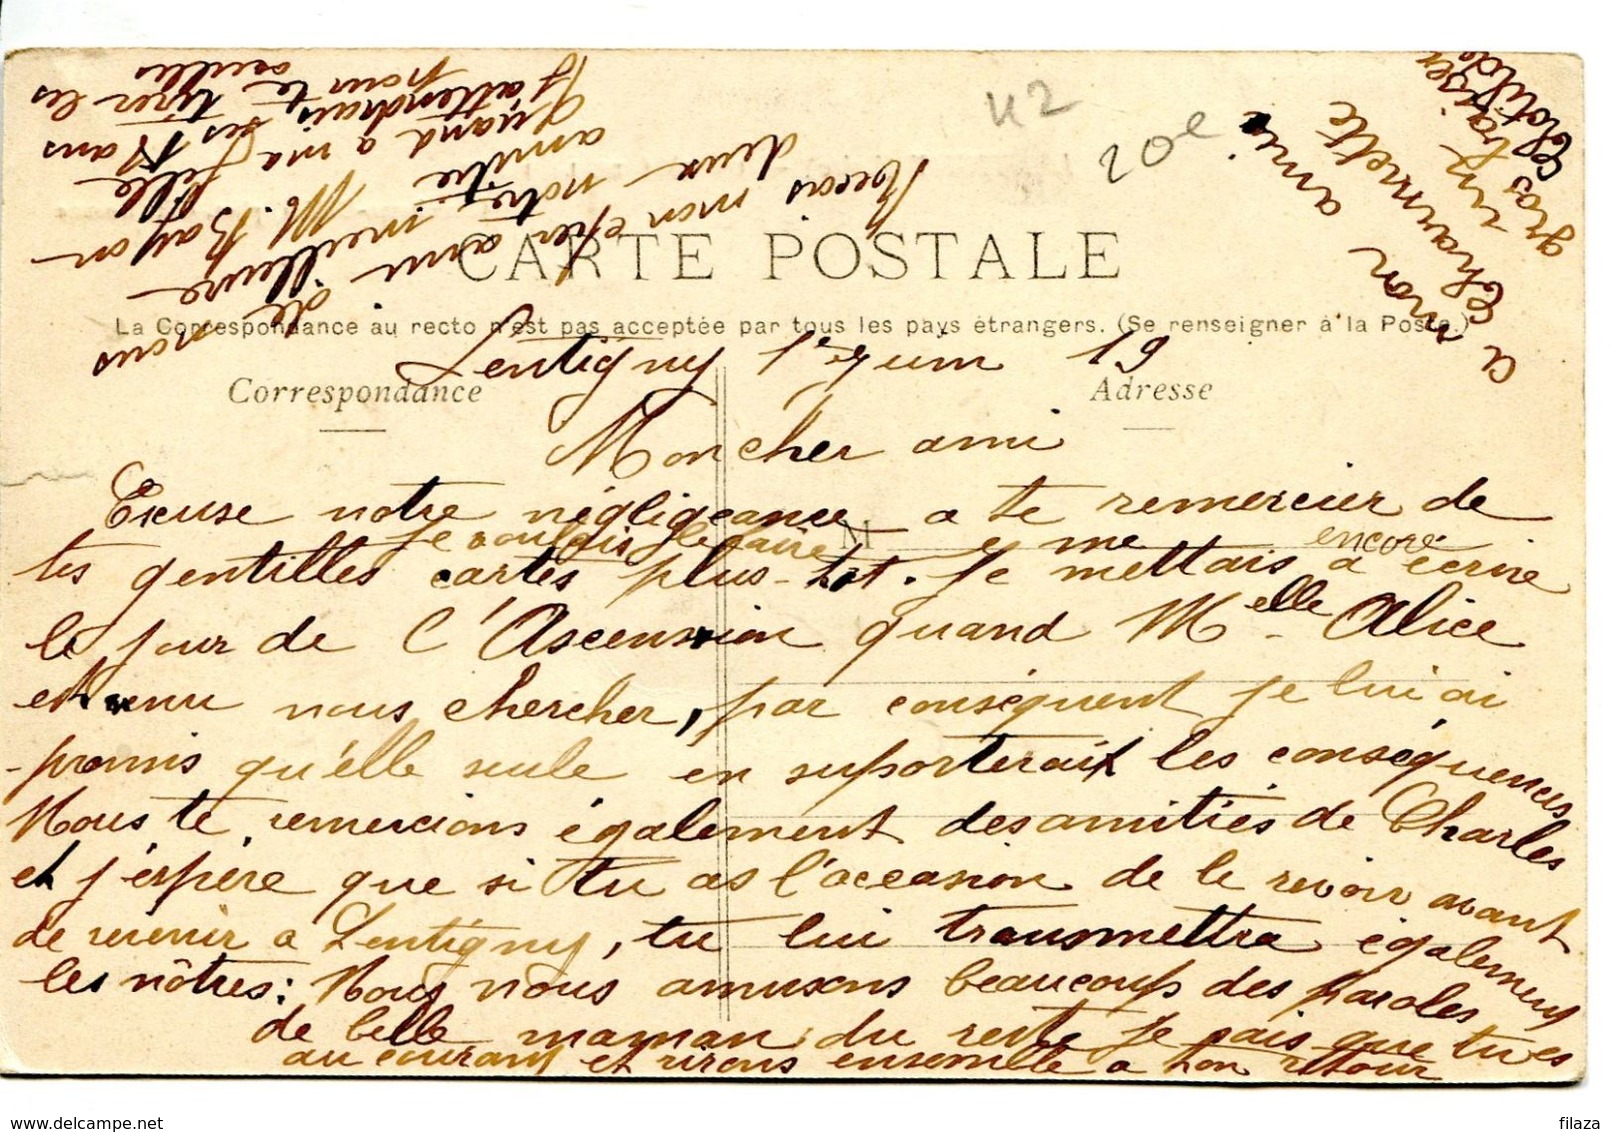 42
20e
CARTE POSTALE
La Correspondance au recto n'est pas acceptée par tous les pays étrangers. (Se renseigner à la Poste.)
Correspondance
Adresse
M
Lentigny 1er juin 19
Mon cher ami
Excuse notre négligeance a te remercier de
je voulais le faire
tes gentilles cartes plus-tot. Je me mettais a encore écrire
le jour de l'Ascension quand Melle Alice
est venu nous chercher, par conséquent je lui ai
promis qu'elle seule en suporterait les conséquences
Nous te remercions également des amitiés de Charles
et j'éspére que si tu as l'occasion de le revoir avant
de revenir a Lentigny, tu lui transmettra également
les nôtres: Nous nous amusons beaucoup des paroles
de belle maman du reste je sais que tu es
au courant et rirons ensemble a ton retour
Recois mon cher ami de nous
deux notre meilleure
amitié M. Bayon
Quand a ma fille
j'attendrais ses 17 ans
pour te tirer les
oreilles
a mon amie
Channette
un
gros baiser
Clotilde
filaza